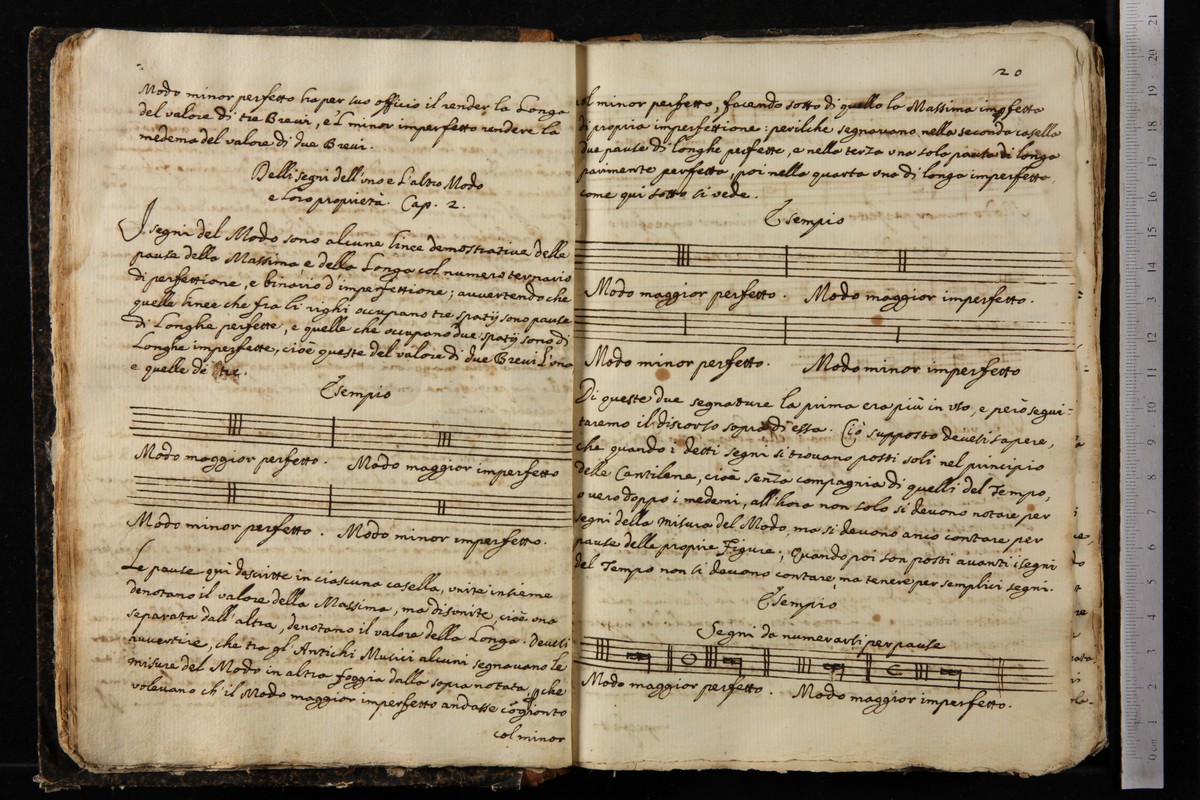 Modo minor perfetto ha per suo officio il render la Longa
del valore di tre Brevi, e 'l minor imperfetto rendere la
medema del valore di due Brevi.
Delli segni dell'uno e l'altro Modo
e loro proprietà. Cap. 2.
I segni del Modo sono alcune linee demostrative delle
pause della Massima e della Longa col numero ternario
di perfettione, e binario d'imperfettione; avvertendo che
quelle linee che fra li righi occupano tre spatij sono pause
di Longhe perfette, e quelle che occupano due spatij sono di
Longhe imperfette, cioè queste del valore di due Brevi l'una
e quelle de tre.
Esempio
Modo maggior perfetto. Modo maggior imperfetto
Modo minor perfetto. Modo minor imperfetto.
Le pause quì descritte in ciascuna casella, unite insieme
denotano il valore della Massima, ma disunite, cioè una
separata dall'altra, denotano il valore della Longa. Devesi
avvertire, che tra gl'Antichi Musici alcuni segnavano le
misure del Modo in altra foggia dalla sopra notata, per che
volevano ch'il Modo maggior imperfetto andasse cõgionto
col minor
20
col minor perfetto, facendo sotto di quello la Massima imperfetta
di propria imperfettione: perilche segnavano nella seconda casella
due pause di longhe perfette, e nella terza una sola pausa di longa
parimente perfetta, poi nella quarta una di longa imperfetta
come qui sotto si vede.
Esempio
Modo maggior perfetto. Modo maggior imperfetto.
Modo minor perfetto. Modo minor imperfetto
Di queste due segnature la prima era più in uso, e però segui-
taremo il discorso sopra di essa. Ciò supposto devesi sapere,
che quando i detti segni si trovano posti soli nel principio
delle Cantilene, cioè senza compagnia di quelli del Tempo,
o vero doppo i medemi, all'hora non solo si devono notare per
segni della misura del Modo, ma si devono anco contare per
pause delle proprie Figure; Quando poi son posti avanti i segni
del Tempo non si devono contare, ma tenere per semplici segni.
Esempio
Segni da numerarsi per pause
Modo maggior perfetto. Modo maggior imperfetto.